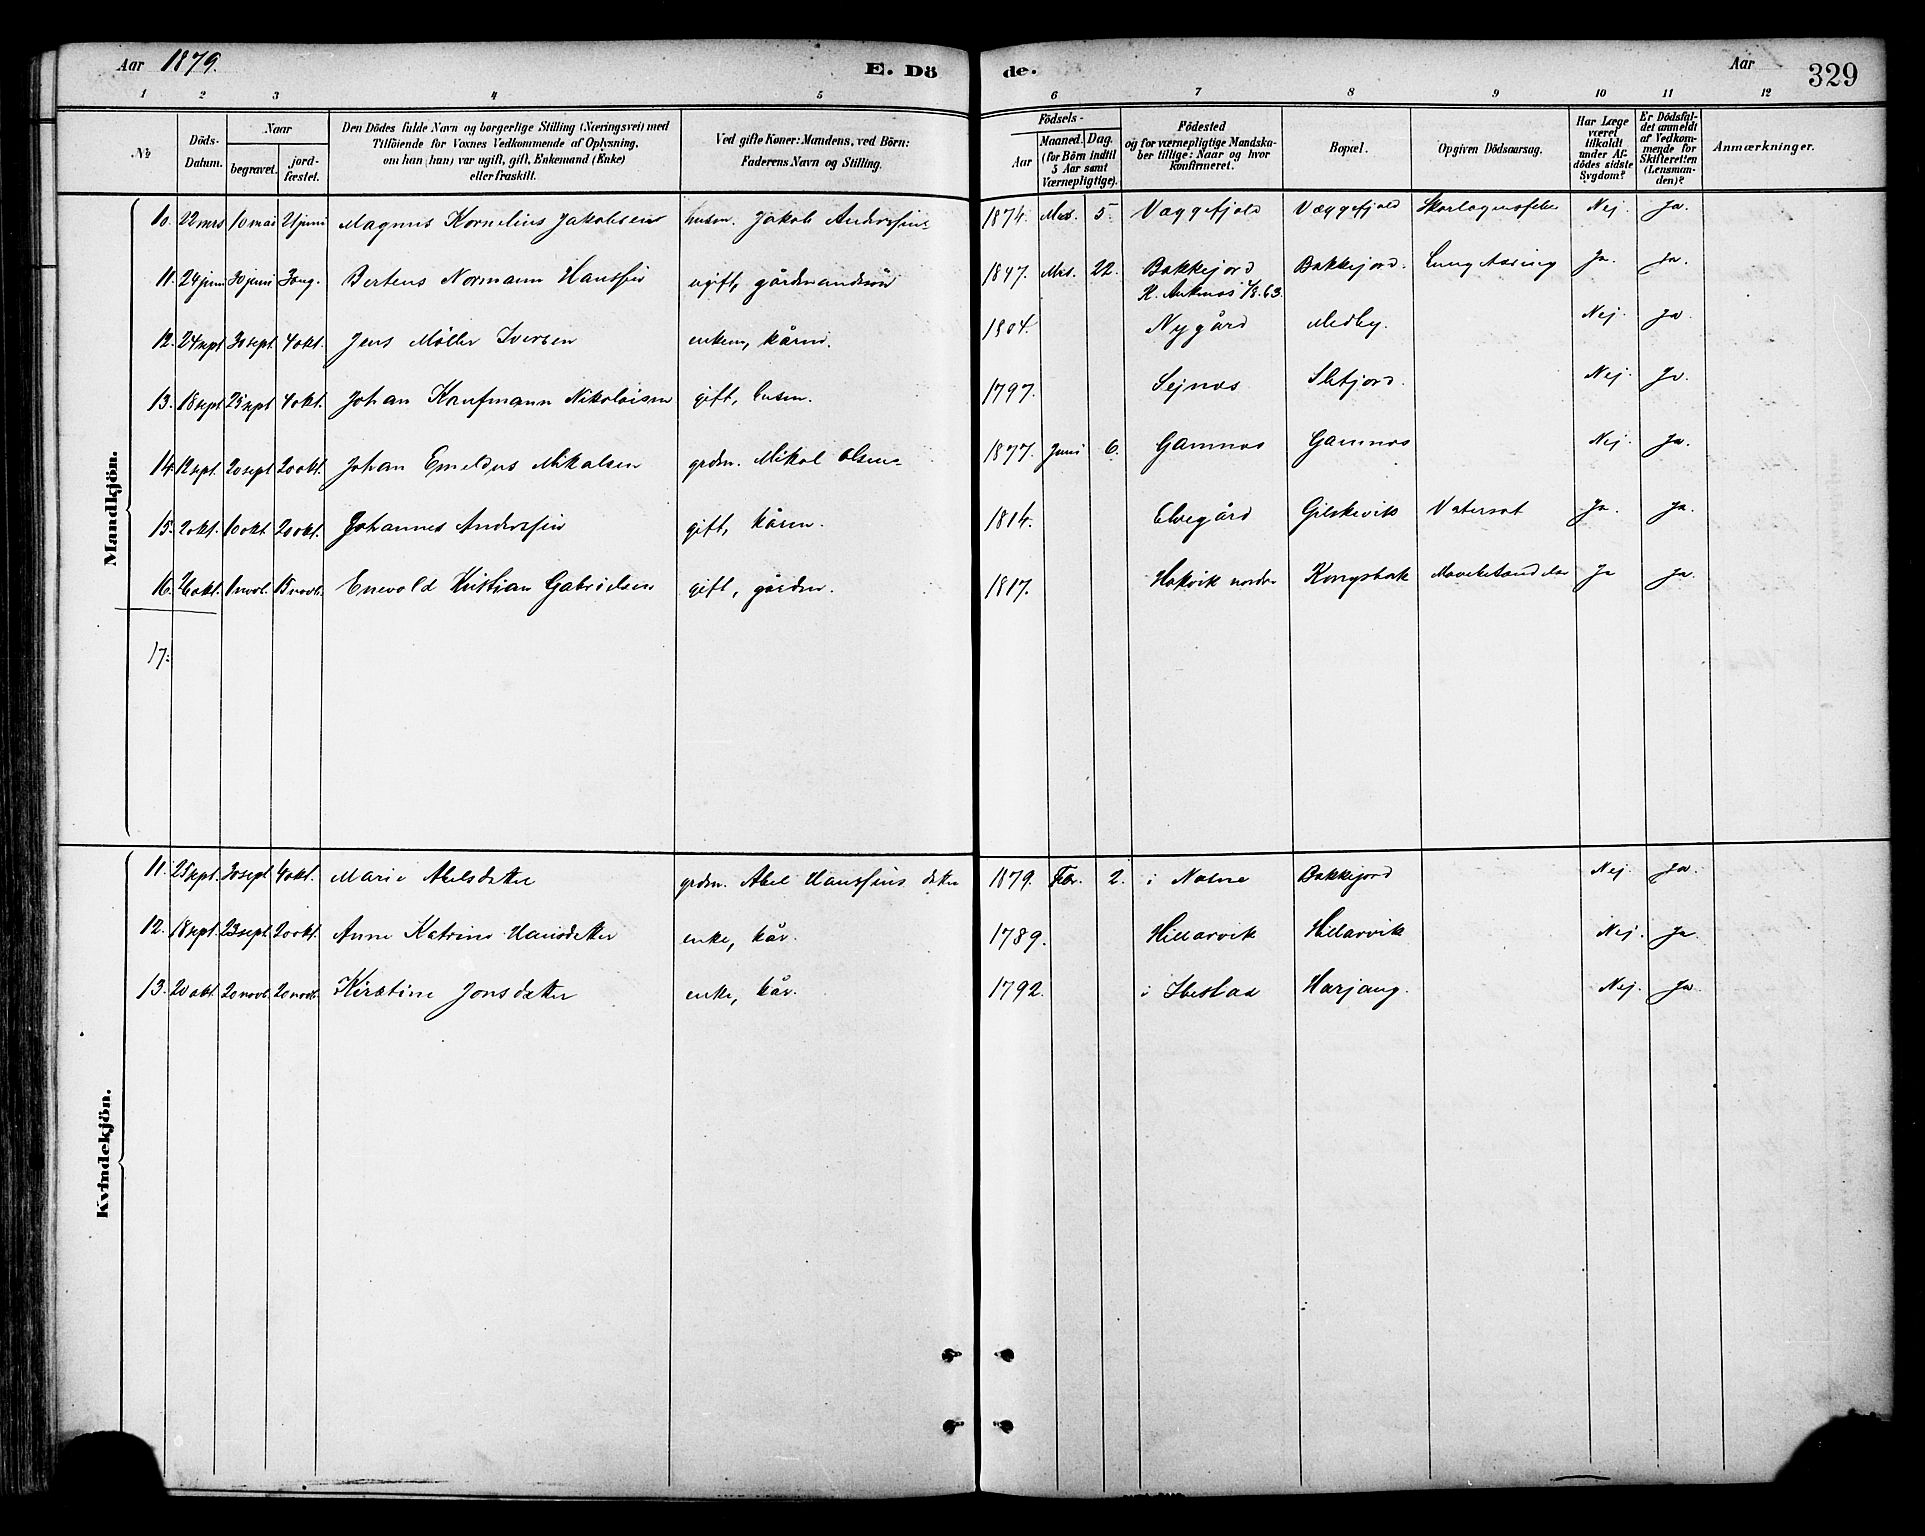 Aar 1879. E. Dö de. Aar 329
1 2 3 4 5 6 7 8 9 10 11 12
№ Döds-Datum. Naar begravet. jordfæstet. Den Dödes fulde Navn og borgerlige Stilling (Næringsvei) med Tilföiende for Voxnes Vedkommende af Oplysning, om han (hun) var ugift, gift, Enkemand (Enke) eller fraskilt. Ved gifte Koner: Mandens, ved Börn: Faderens Navn og Stilling. Födsels- Aar Maaned. Dag. (for Börn indtil 5 Aar samt Værnepligtige). Födested og for værnepligtige Mandskaber tillige: Naar og hvor konfirmeret. Bopæl. Opgiven Dödsaarsag. Har Læge været tilkaldt under Afdödes sidste Sygdom? Er Dödsfaldet anmeldt af Vedkommende for Skifteretten (Lensmanden)? Anmærkninger.
Mandkjön.
10. 22 mrs 10 mai 21 juni Magnus Kornelius Jakobsen husm. Jakob Anderssens 1874. Mrs. 5. Væggefjeld Væggefjeld Nej. Ja.
11. 24 juni 30 juni 3 aug. Berteus Normann Hanssen ugift, gårdmandssön 1847. Mrs. 22. Bakkejord Bakkejord. Lungetæring Ja. Ja.
K. Ankenes 63.
12. 24 sept 30 sept 4 okt. Jens Möller Iversen enkem, kårm. 1804. Nygård Medby. Nej. Ja.
13. 18 sept 25 sept 4 okt. Johan Kaufmann Nikolaisen gift, husm. 1797. Sejnes Nej. Ja.
14. 12 sept. 20 sept 20 okt. Johan Emeldus Mikalsen grdm. Mikal Olsens 1877. Juni 6. Gamnes Gamnes Nej. Ja.
15. 2 okt. 10 okt 20 okt. Johannes Anderssen gift, kårm. 1814. Elvegård Vatersot Ja. Ja.
16. 26 okt. 1 novb. 15 novb. Enevold Kristian Gabrielsen gift, gårdm. 1817. Håkvik nordre Kongsbak Ja Ja.
17.
Kvindekjön.
11. 25 sept. 30 sept 4 okt. Marie Abelsdatter grdm. Abel Hanssens datter 1879. Febr. 2. i Bakkejord Nej. Ja.
12. 18 sept. 23 sept. 20 okt. Anne Katrine Hansdatter enke, kår. 1789. Hillarvik Hillarvik Nej. Ja.
13. 20 okt. 20 novb. 20 novb. Kirstine Jonsdatter enke, kår. 1792. i Ibestad Harjang. Nej. Ja.